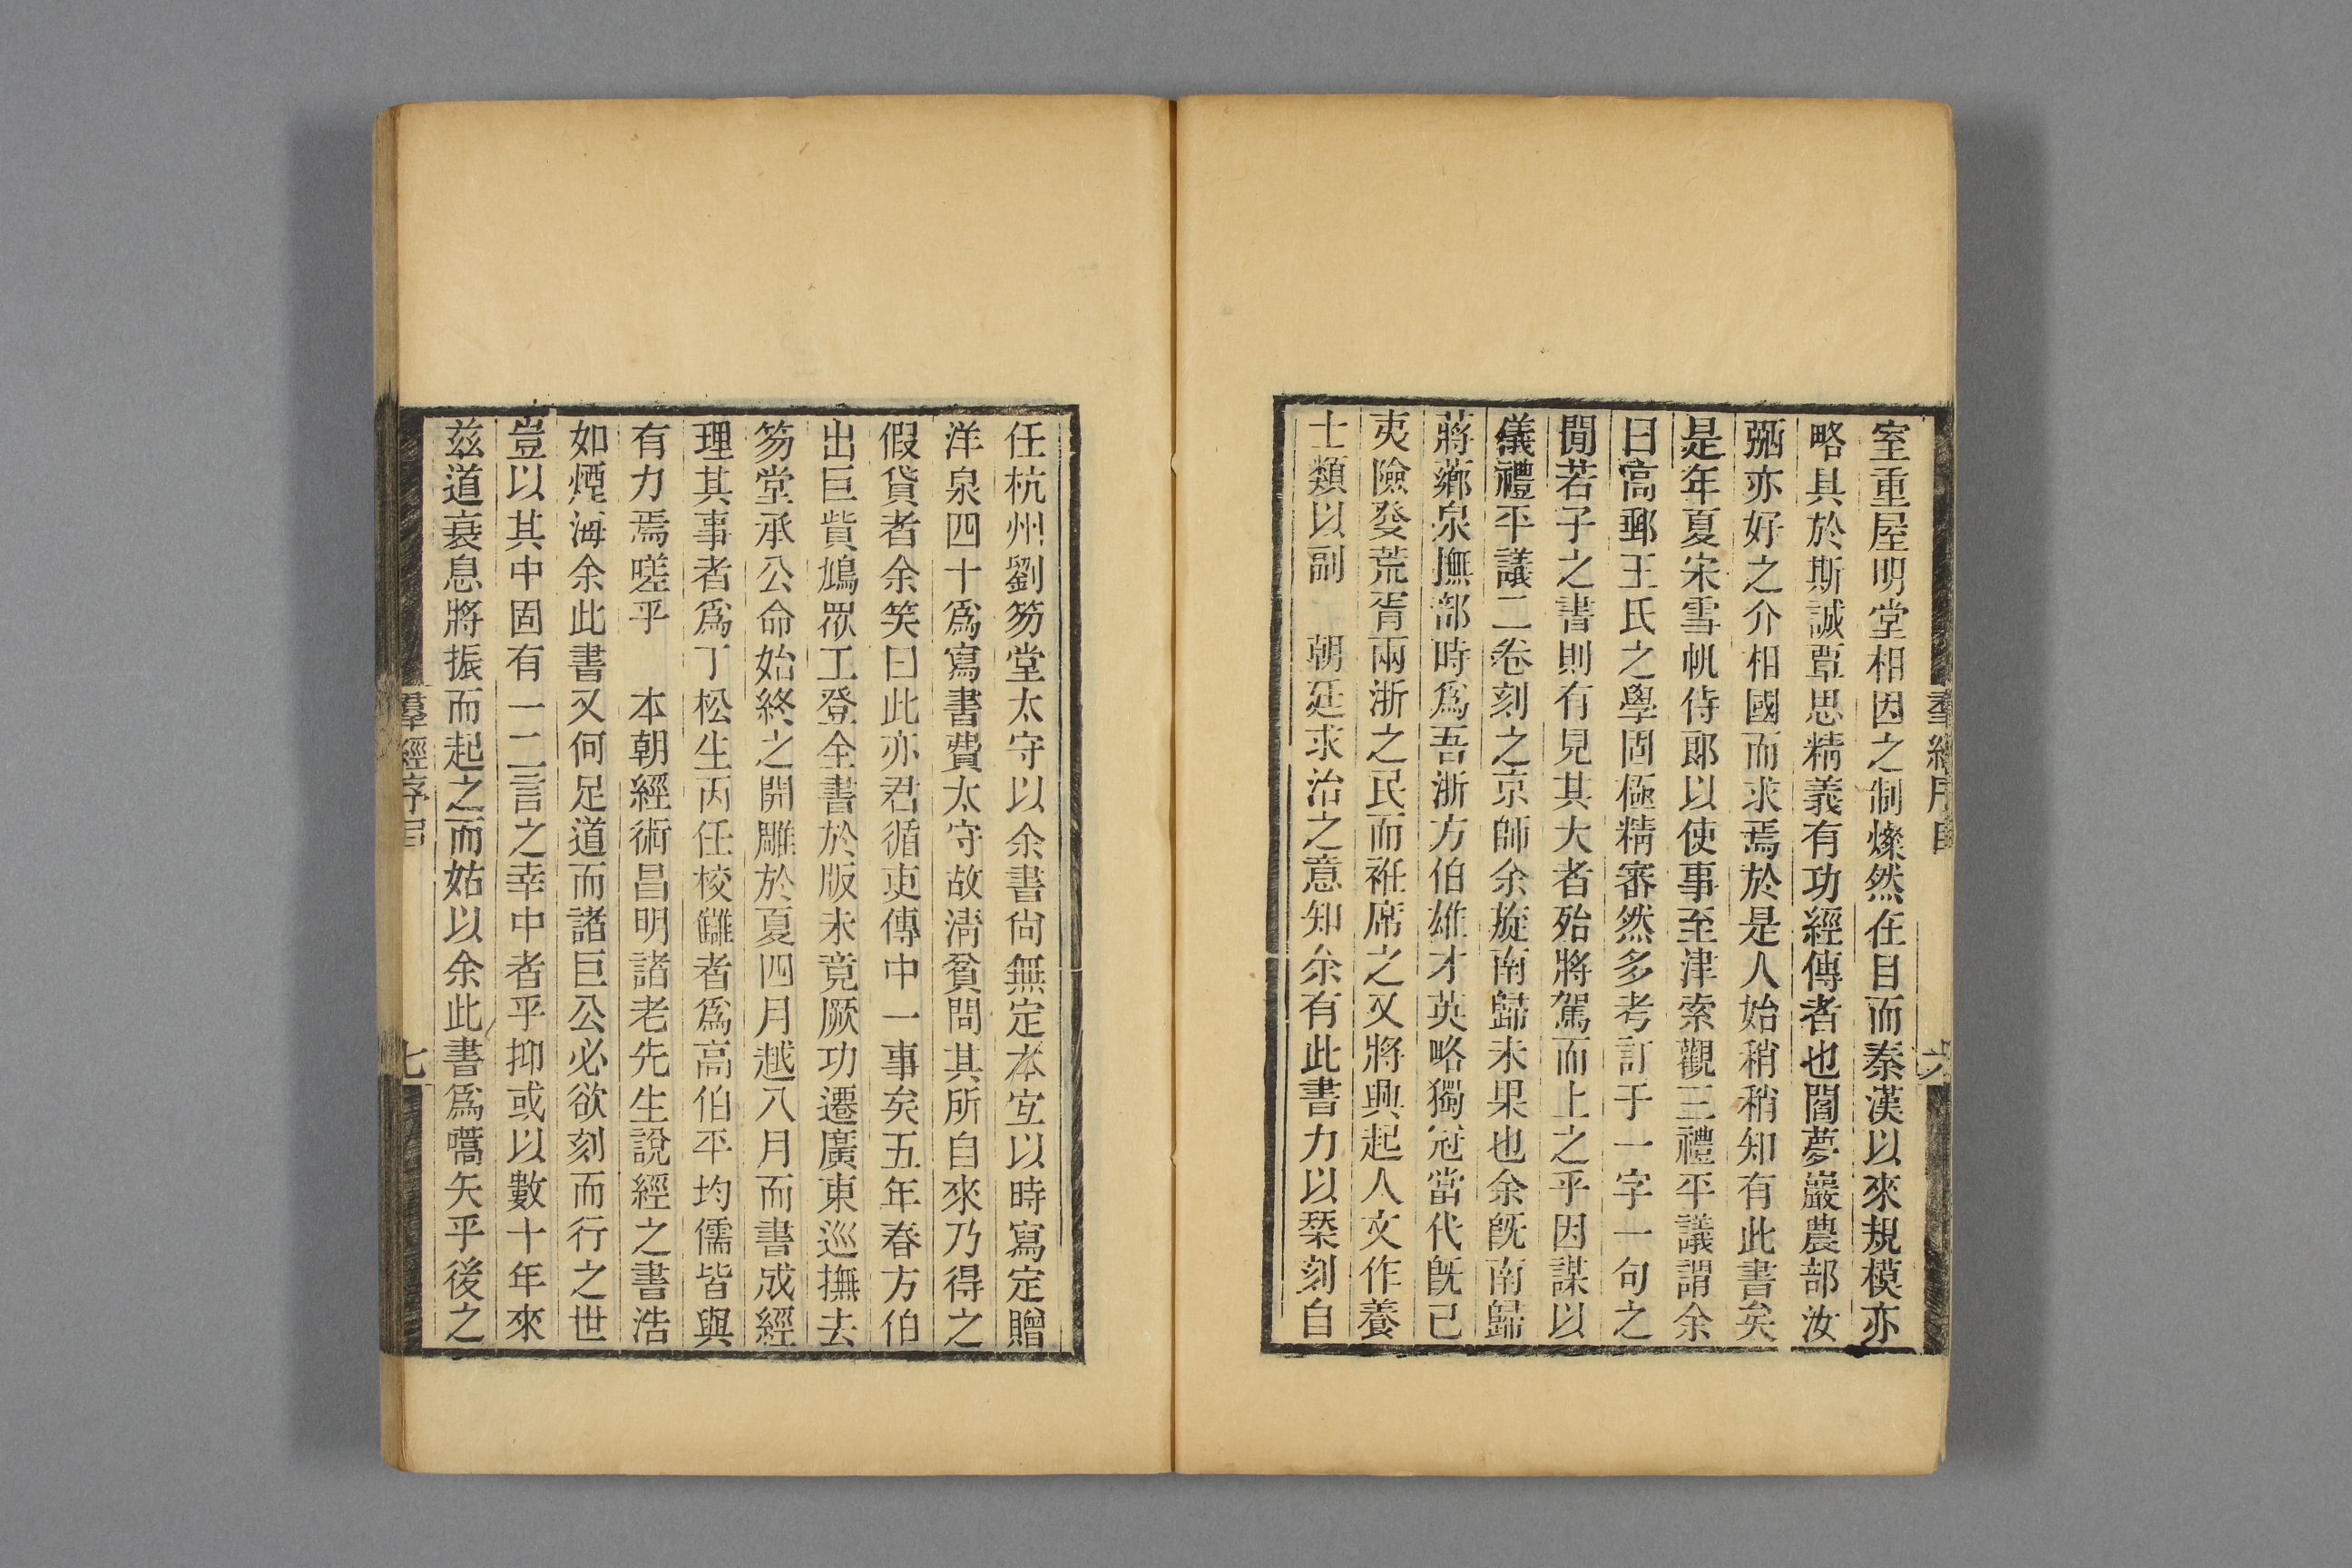 室重屋明堂相因之制燦然在目而秦漢以來規模亦
略具於斯誠覃思精義有功經傳者也閻夢巖農部汝
弼亦好之介相國而求焉於是人始稍稍知有此書矣
是年夏宋雪帆侍郎以使事至津索觀三禮平議謂余
曰高郵王氏之學固極精審然多考訂于一字一句之
閒若子之書則有見其大者殆將駕而上之乎因謀以
儀禮平議二卷刻之京師余旋南歸未果也余旣南歸
蔣薌泉撫部時爲吾浙方伯雄才英略獨冠當代旣已
夷險發荒胥兩浙之民而衽席之又將興起人文作養
士類以副 朝廷求治之意知余有此書力以栞刻自
任杭州劉笏堂太守以余書尙無定本宐以時寫定贈
洋泉四十爲寫書費太守故淸貧問其所自來乃得之
假貸者余笑曰此亦君循吏傳中一事矣五年春方伯
出巨貲鳩眾工登全書於版未竟厥功遷廣東巡撫去
笏堂承公命始終之開雕於夏四月越八月而書成經
理其事者爲丁松生丙任校讎者爲高伯平均儒皆與
有力焉嗟乎 本朝經術昌明諸老先生說經之書浩
如煙海余此書又何足道而諸巨公必欲刻而行之世
豈以其中固有一二言之幸中者乎抑或以數十年來
兹道衰息將振而起之而姑以余此書爲嚆矢乎後之
羣經序目
七